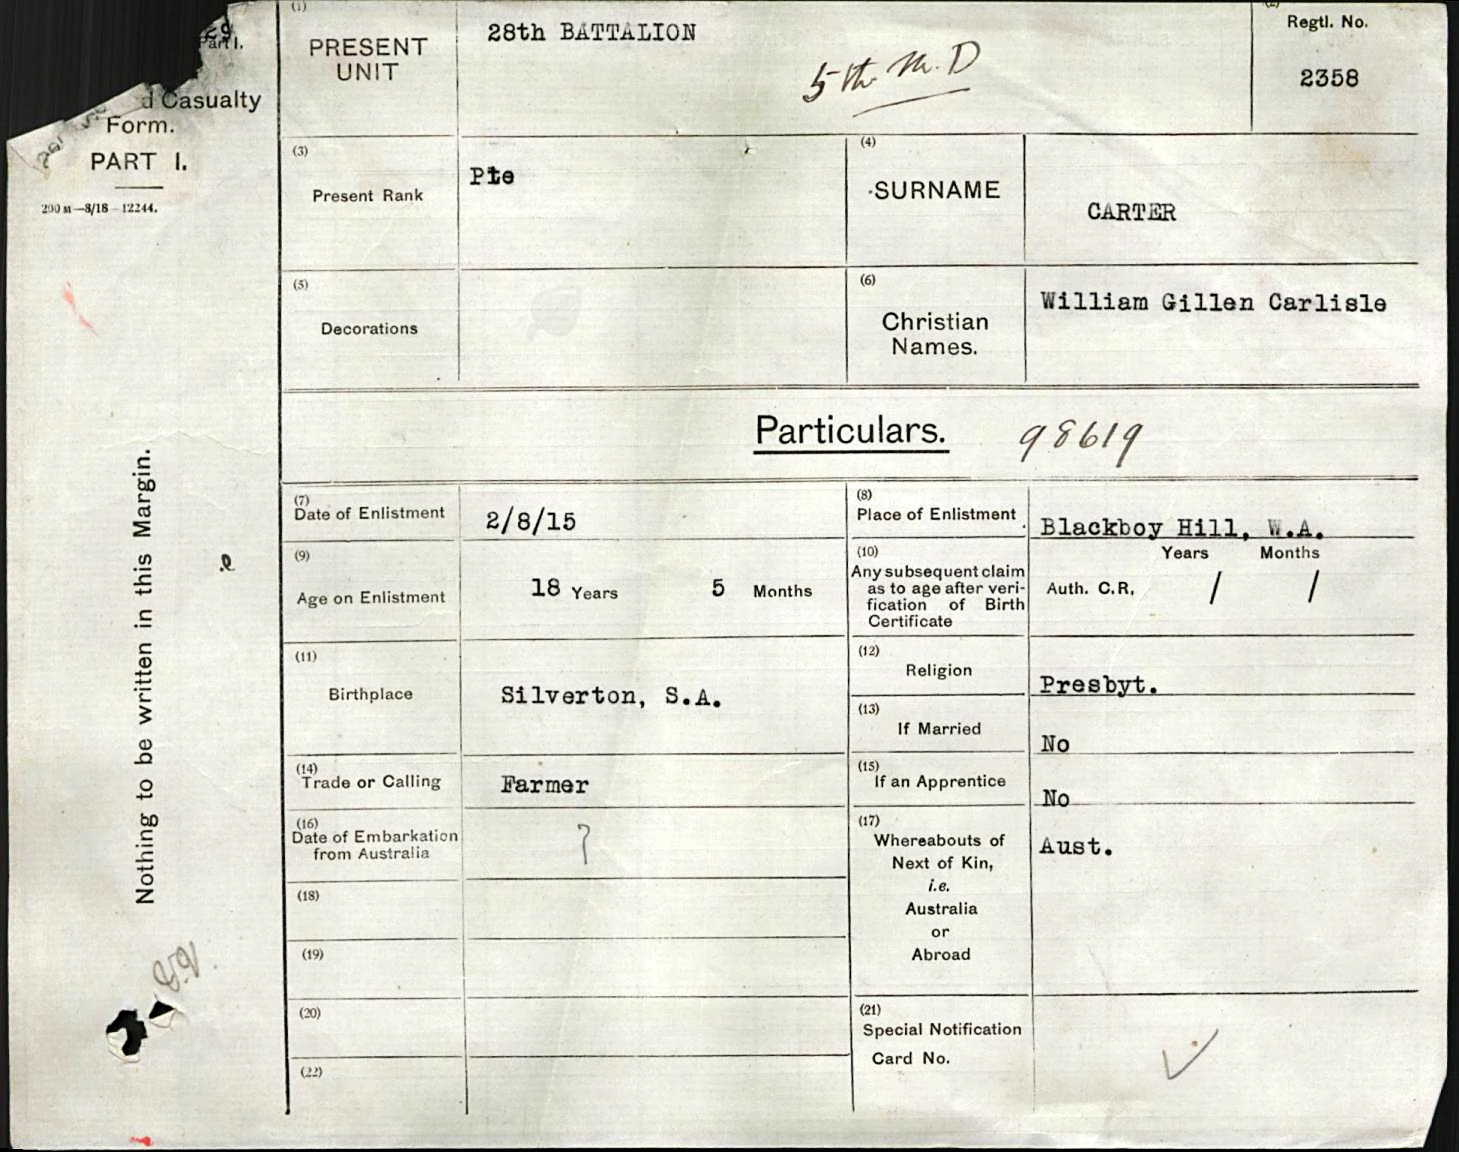 (1)
PRESENT
UNIT
28th BATTALION
5th M.D
(2)
Regtl. No.
2358
Part I.
d Casualty
Form.
PART I.
200M—8/18—12244.
(3)
Present Rank
Pte
(4)
SURNAME
CARTER
(5)
Decorations
(6)
Christian
Names.
William Gillen Carlisle
Particulars.
98619
(7)
Date of Enlistment
2/8/15
(8)
Place of Enlistment
Blackboy Hill, W.A.
(9)
Age on Enlistment
18 Years 5 Months
(10)
Any subsequent claim
as to age after veri-
fication of Birth
Certificate
Years Months
Auth. C.R,
/ /
(11)
Birthplace
Silverton, S.A.
(12)
Religion
Presbyt.
(13)
If Married
No
(14)
Trade or Calling
Farmer
(15)
If an Apprentice
No
(16)
Date of Embarkation
from Australia
?
(17)
Whereabouts of
Next of Kin,
i.e.
Australia
or
Abroad
Aust.
(18)
(19)
(20)
(21)
Special Notification
Card No.
(22)
Nothing to be written in this Margin.